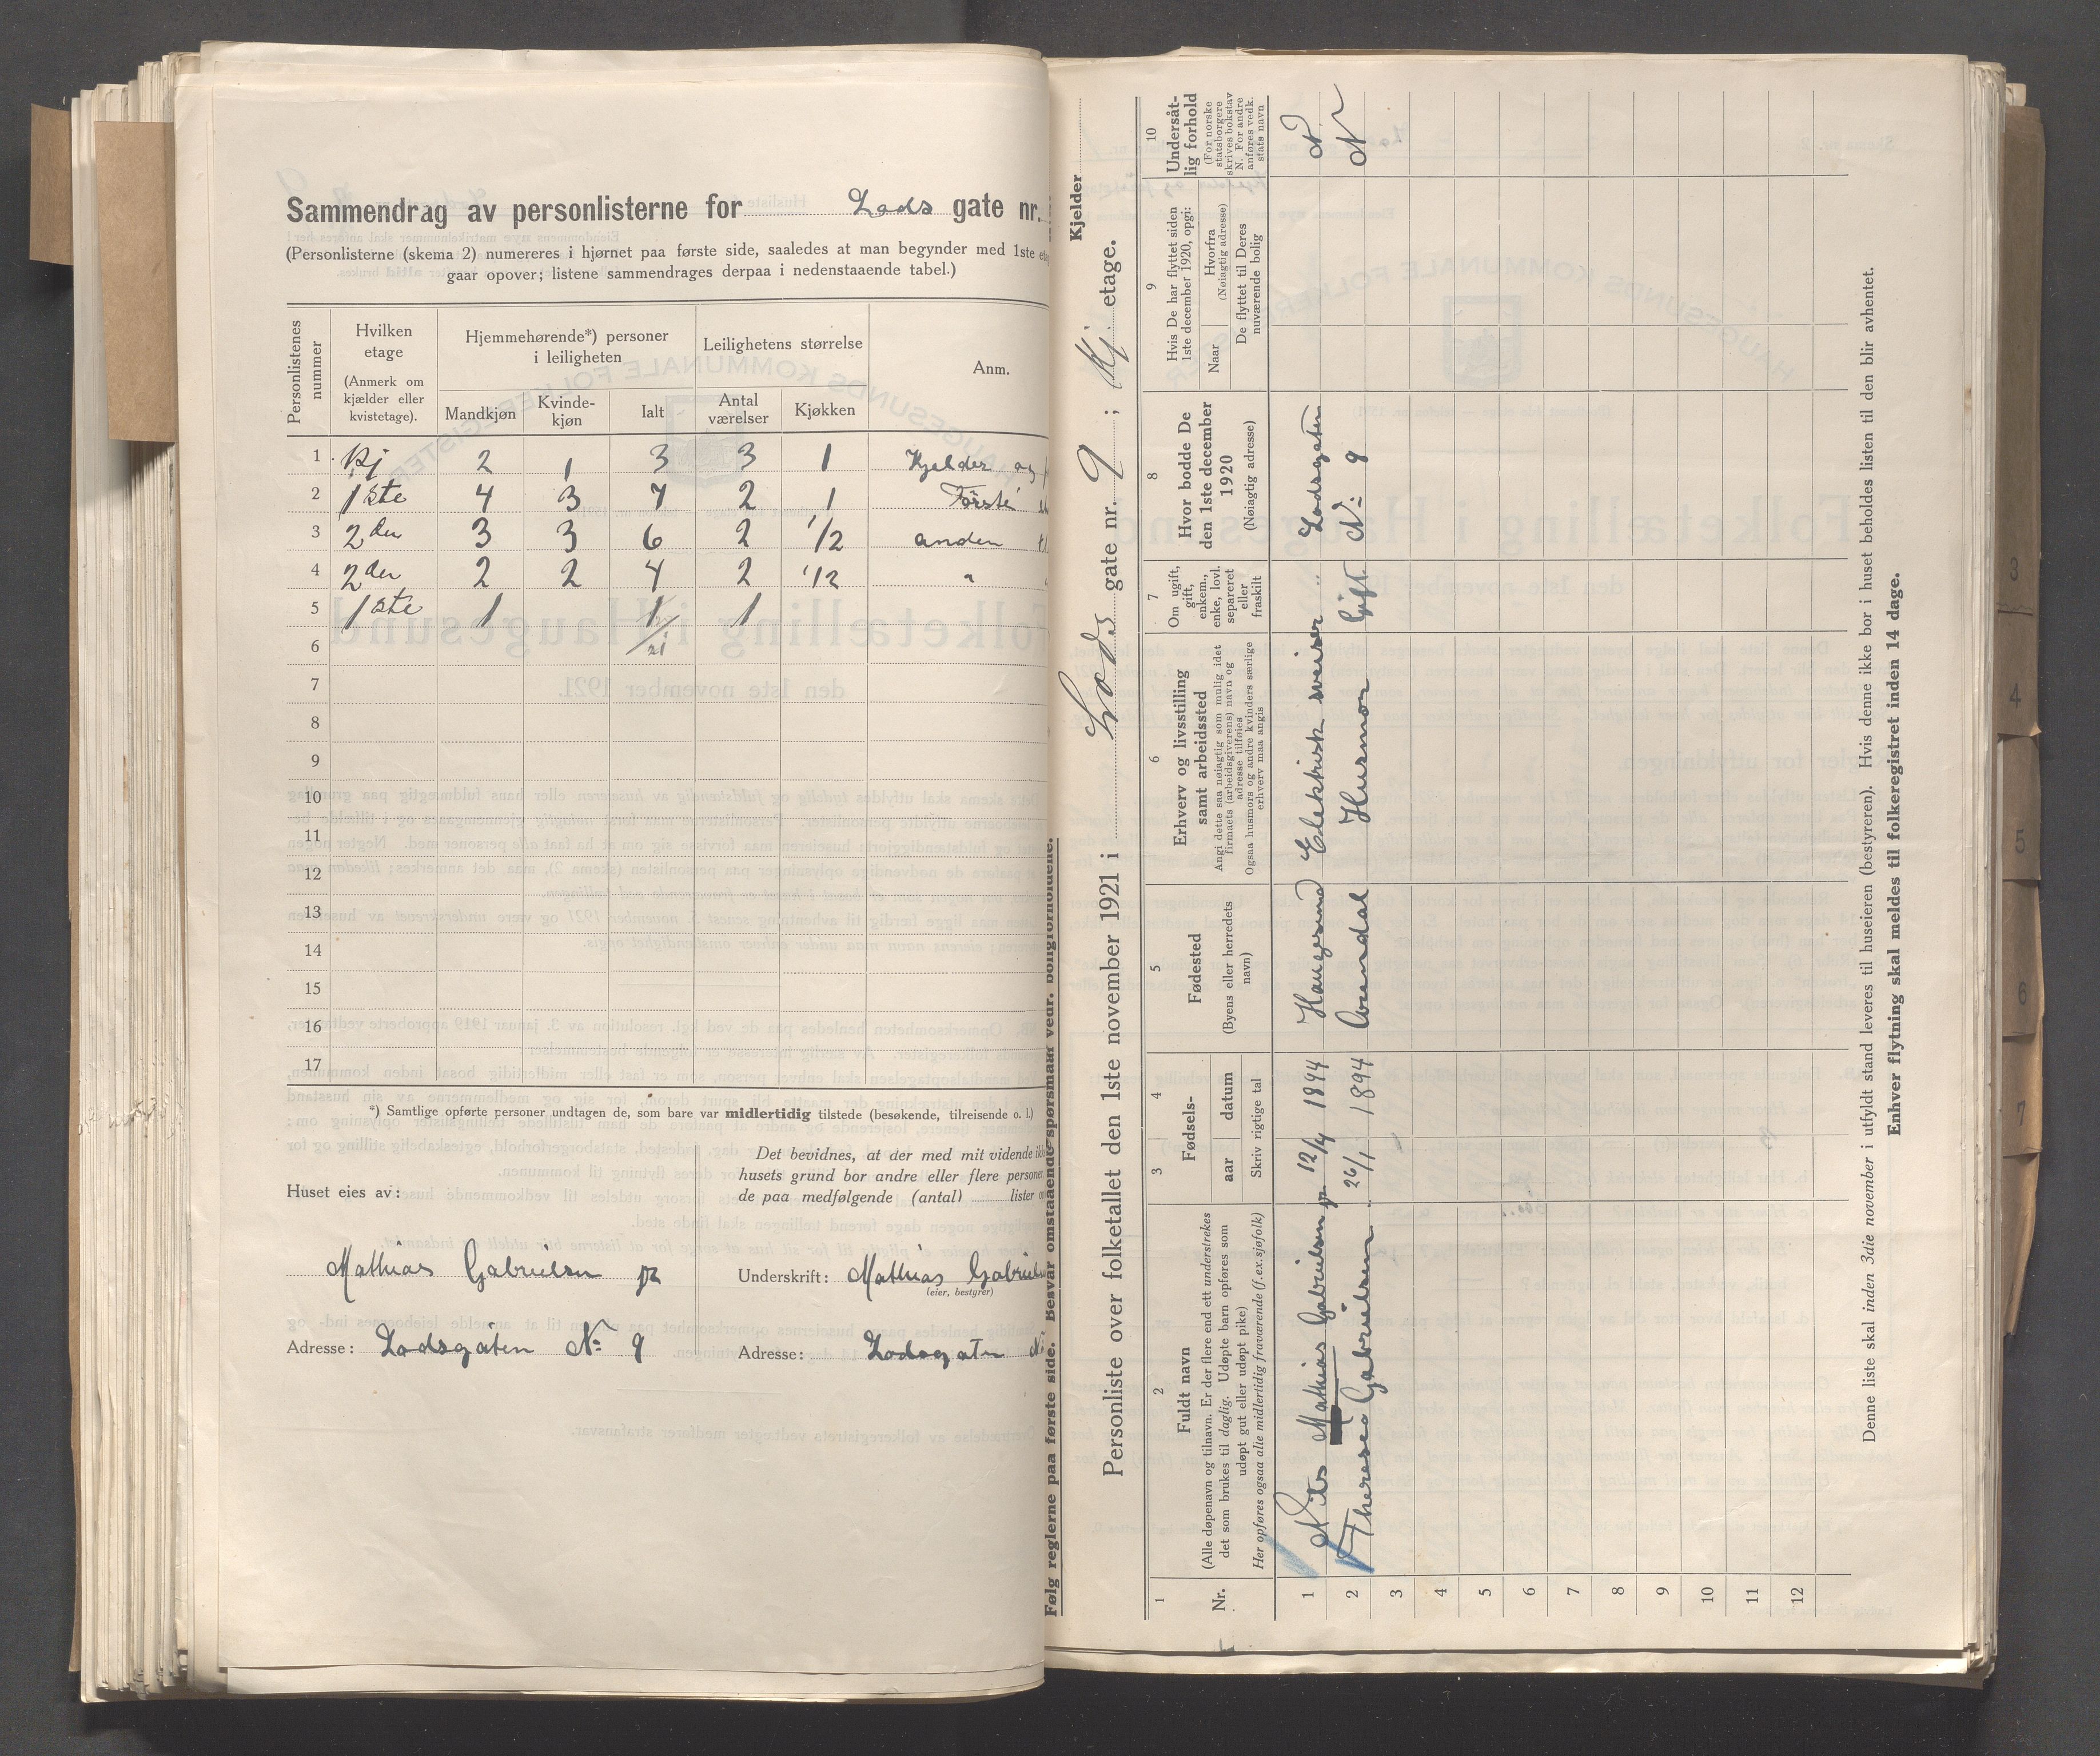 Sammendrag av personlisterne for Lods gate nr.
(Personlisterne (skema 2) numereres i hjørnet paa første side, saaledes at man begynder med 1ste
gaar opover; listene sammendrages derpaa i nedenstaaende tabel.)
Personlistenes nummer
Hvilken etage
(Anmerk om kjælder eller kvistetage).
Hjemmehørende*) personer i leiligheten
Mandkjøn
Kvinde-kjøn
Ialt
Leilighetens størrelse
Antal værelser
Kjøkken
Anm.
1 Kj 2 1 3 3 1 Kjelder og
2 1ste 4 3 7 2 1 Første
3 2den 3 3 6 2 1/2 anden
4 2den 2 2 4 2 1/2 "
5 1ste 1 1 1
6 21
7
8
9
10
11
12
13
14
15
16
17
*) Samtlige opførte personer undtagen de, som bare var midlertidig tilstede (besøkende, tilreisende o. l.)
Huset eies av:
Mathias Gabrielsen jr
Adresse: Lodsgaten No 9
Det bevidnes, at der med mit vidende
husets grund bor andre eller flere personer
de paa medfølgende (antal) lister
Underskrift: Mathias
(eier, bestyrer)
Adresse: Lodsgaten
Følg reglerne paa første side. Besvar omstaaende spørsmaal vedr. boligforholdene.
Kjelder
Personliste over folketallet den 1ste november 1921 i Lods gate nr. 9; Kj. etage.
1
Nr.
2
Fuldt navn
(Alle døpenavn og tilnavn. Er der flere end ett understrekes
det som brukes til daglig. Udøpte barn opføres som
udøpt gut eller udøpt pike)
Her opføres ogsaa alle midlertidig fraværende (f.ex.sjøfolk)
3 4
Fødsels-
aar datum
Skriv rigtige tal
5
Fødested
(Byens eller herredets navn)
6
Erhverv og livsstilling
samt arbeidssted
Angi dette saa nøiagtig som mulig idet
firmaets (arbeidsgiverens) navn og
adresse tilføies
Ogsaa husmors og andre kvinders særlige
erhverv maa angis
7
Om ugift,
gift,
enkem.,
enke, lovl.
separeret
eller
fraskilt
8
Hvor bodde De
den 1ste december
1920
(Nøiagtig adresse)
9
Hvis De har flyttet siden
1ste december 1920, opgi:
Naar
Hvorfra
(Nøiagtig adresse)
De flyttet til Deres
nuværende bolig
10
Undersåt-
lig forhold
(For norske
statsborgere
skrives bokstav
N. For andre
anføres vedk.
stats navn
1 Nils Mathias Gabrielsen jr 12/4 1894 Haugesund Elektrisk sveiser " Lodsgaten N
2 Therese Gabrielsen 26/1 1894 Husmor Gift No: 9 N
3
4
5
6
7
8
9
10
11
12
Denne liste skal inden 3die november i utfyldt stand leveres til huseieren (bestyreren). Hvis denne ikke bor i huset beholdes listen til den blir avhentet.
Enhver flytning skal meldes til folkeregistret inden 14 dage.
3
4
5
6
7